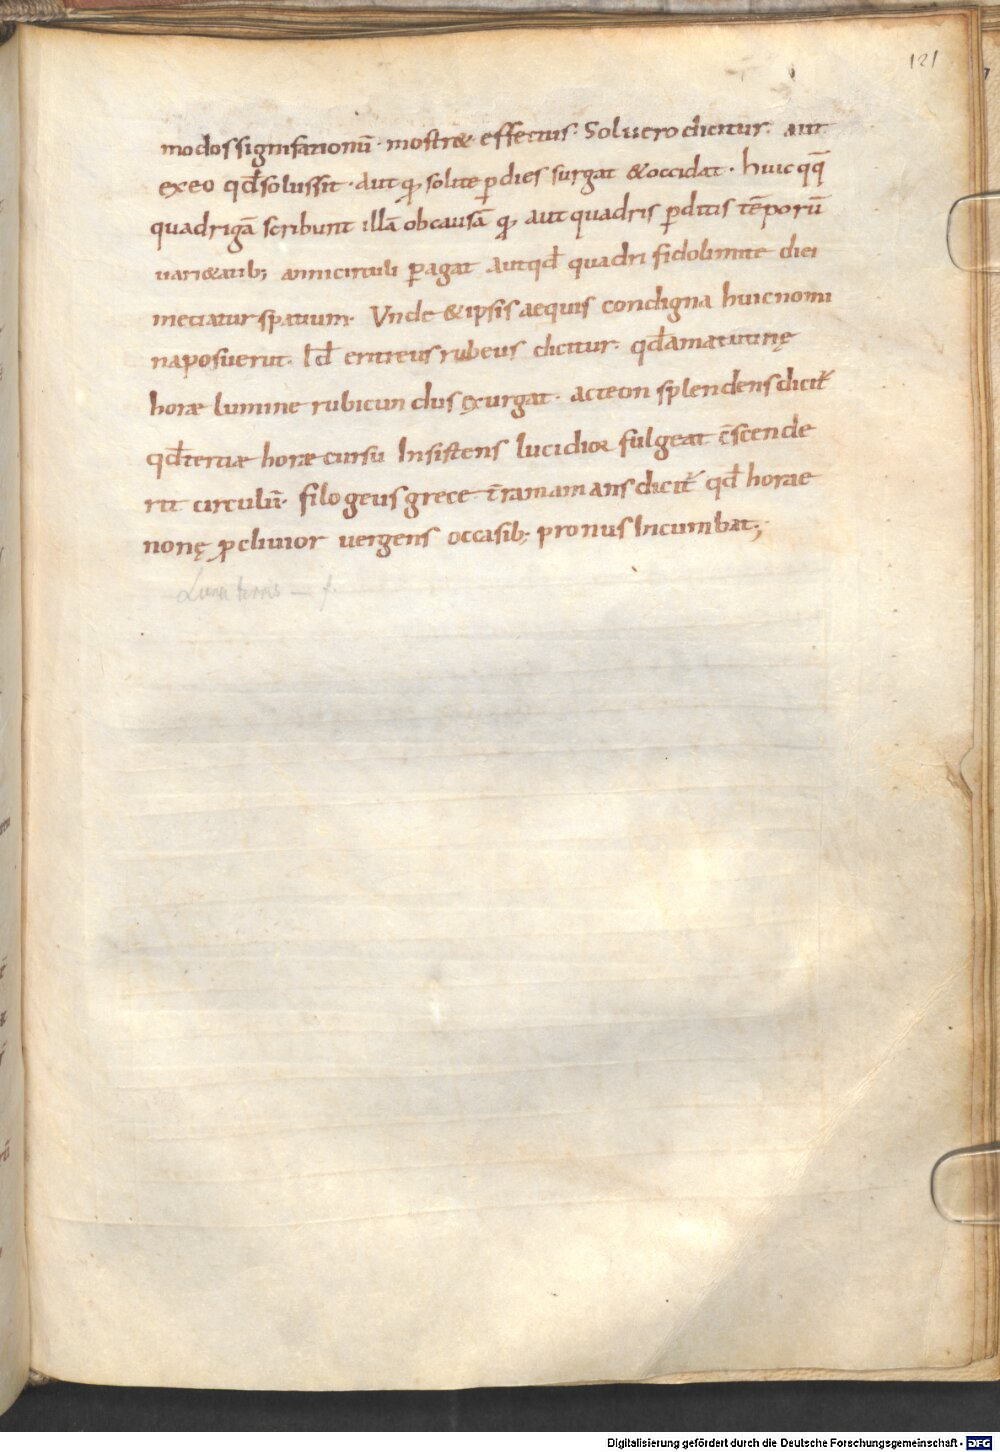 121
modos significationū · mostr& effectus · Sol uero dicitur · aut
exeo qđ solus sit · aut qꝫ solite ꝑ dies surgat & occidat · huic qq̄
quadrigā scribunt illā ob causā qꝫ aut quadris ꝑditis tēporū
uari&atibꝫ anni circuli ꝑagat aut qđ quadrifido limite diei
metiatur spatium · Unde & ipsis aequis condigna huic nomi
na posuerut · Id ē eritreus rubeus dicitur · qđ a matutinę
horæ lumine rubicundus exurgat · acteon splendens dicit̄
qđ tertiæ horæ cursu Insistens lucidior fulgeat c̄scende
rit circulū · filogeus grece t̄ram amans dicit̄ qđ horae
nonę ꝓcliuior uergens occasibꝫ pronus Incumbat ;
Luna terris — f.
Digitalisierung gefördert durch die Deutsche Forschungsgemeinschaft - DFG